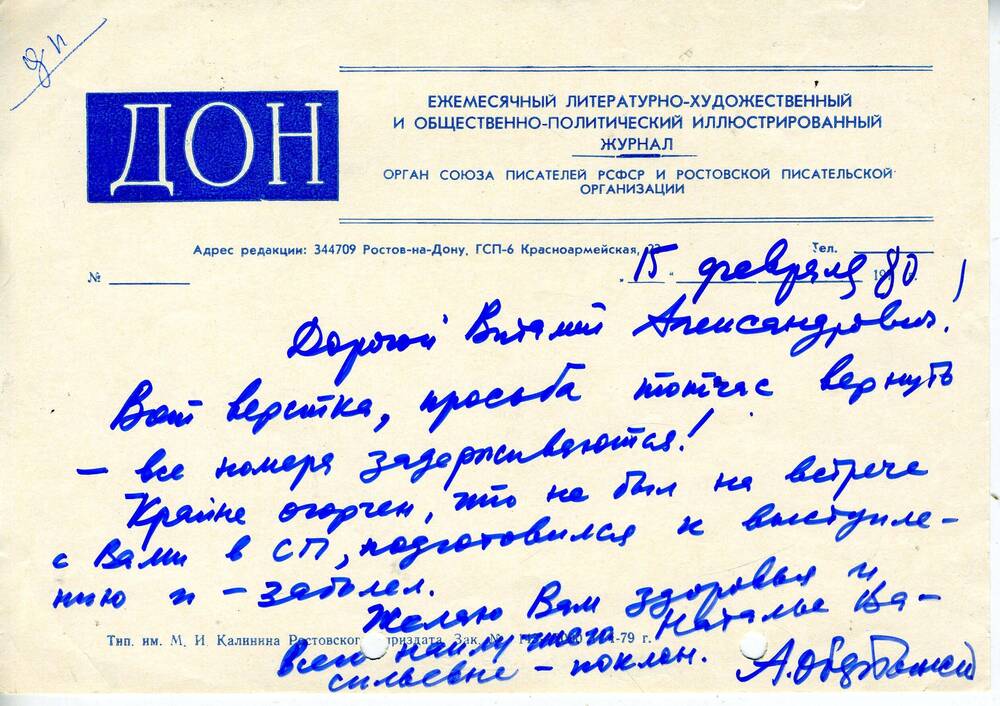 ДОН
ЕЖЕМЕСЯЧНЫЙ ЛИТЕРАТУРНО-ХУДОЖЕСТВЕННЫЙ
И ОБЩЕСТВЕННО-ПОЛИТИЧЕСКИЙ ИЛЛЮСТРИРОВАННЫЙ
ЖУРНАЛ
ОРГАН СОЮЗА ПИСАТЕЛЕЙ РСФСР И РОСТОВСКОЙ ПИСАТЕЛЬСКОЙ
ОРГАНИЗАЦИИ
Адрес редакции: 344709 Ростов-на-Дону, ГСП-6 Красноармейская, Тел.
№ „15“ февраля 1980 г.
Дорогой Виталий Александрович!
Вот верстка, просьба тотчас вернуть
— все номера задерживаются!
Крайне огорчен, что не был на встрече
с Вами в СП, подготовился к выступле-
нию и — заболел.
Желаю Вам здоровья и
всего наилучшего. Наталье Ва-
сильевне — поклон.
Тип. им. М. И. Калинина Ростовского Зак. № -79 г.